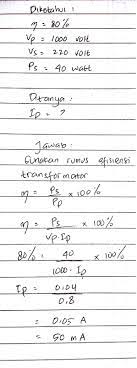 Diketahui :
η = 80%
Vp = 1000 volt
Vs = 220 volt
Ps = 40 watt
Ditanya :
Ip = ?
Jawab :
Gunakan rumus efisiensi
transformator
η = Ps/Pp × 100%
η = Ps/Vp.Ip × 100%
80% = 40/1000.Ip × 100%
Ip = 0.04/0.8
= 0.05 A
= 50 mA